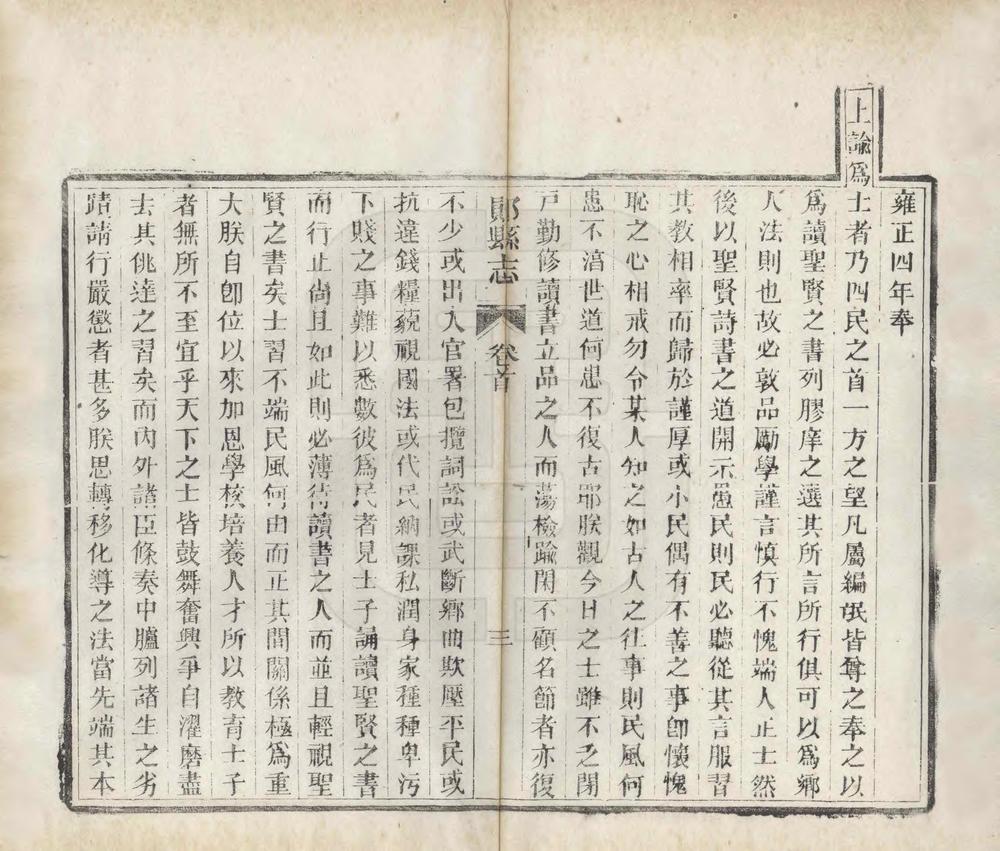 雍正四年奉
上諭爲士者乃四民之首一方之望凡屬編氓皆尊之奉之以
爲讀聖賢之書列膠庠之選其所言所行俱可以爲鄉
人法則也故必敦品勵學謹言慎行不愧端人正士然
後以聖賢詩書之道開示愚民則民必聽從其言服習
其教相率而歸於謹厚或小民偶有不善之事卽懷愧
恥之心相戒勿令某人知之如古人之往事則民風何
患不湻世道何患不復古耶朕觀今日之士雖不乏閉
戸勤修讀書立品之人而蕩檢踰閑不顧名節者亦復
郧縣志 卷首 三
不少或出入官署包攬詞訟或武斷鄉曲欺壓平民或
抗違錢糧藐視國法或代民納課私潤身家種種卑污
下賤之事難以悉數彼爲民者見士子誦讀聖賢之書
而行止尚且如此則必薄待讀書之人而並且輕視聖
賢之書矣士習不端民風何由而正其間關係極爲重
大朕自卽位以來加恩學校培養人才所以教育士子
者無所不至宜乎天下之士皆鼓舞奮興爭自濯磨盡
去其佻達之習矣而內外諸臣條奏中臚列諸生之劣
蹟請行嚴懲者甚多朕思轉移化導之法當先端其本